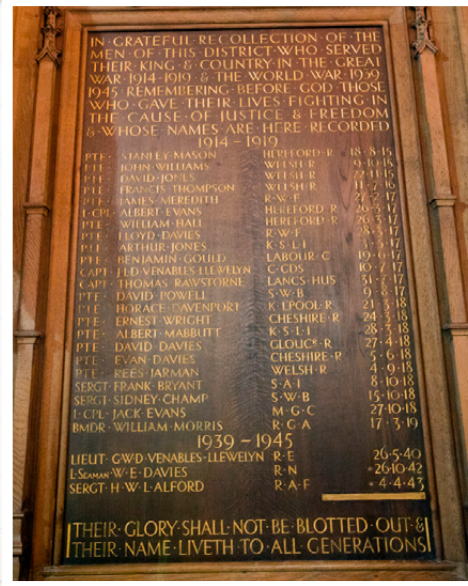 IN·GRATEFUL·RECOLLECTION·OF·THE
MEN·OF·THIS·DISTRICT·WHO·SERVED
THEIR·KING·&·COUNTRY·IN·THE·GREAT
WAR·1914-1919·&·THE·WORLD·WAR·1939
1945·REMEMBERING·BEFORE·GOD·THOSE
WHO·GAVE·THEIR·LIVES·FIGHTING·IN
THE·CAUSE·OF·JUSTICE·&·FREEDOM
&·WHOSE·NAMES·ARE·HERE·RECORDED
1914–1919
PTE· STANLEY·MASON HEREFORD·R 18·8·15
PTE· JOHN·WILLIAMS WELSH·R 9·10·15
PTE· DAVID·JONES WELSH·R 22·11·15
PTE· FRANCIS·THOMPSON WELSH·R 11·7·16
PTE· JAMES·MEREDITH R·W·F 27·2·17
L·CPL· ALBERT·EVANS HEREFORD·R 26·3·17
PTE· WILLIAM·HALL HEREFORD·R 26·3·17
PTE· LLOYD·DAVIES R·W·F 28·3·17
PTE· ARTHUR·JONES K·S·L·I 3·5·17
PTE· BENJAMIN·GOULD LABOUR·C 19·6·17
CAPT· J·L·D·VENABLES-LLEWELYN C·GDS 10·7·17
CAPT· THOMAS·RAWSTORNE LANCS·HUS 31·7·17
PTE· DAVID·POWELL S·W·B 9·8·17
PTE· HORACE·DAVENPORT K·L'POOL·R 21·3·18
PTE· ERNEST·WRIGHT CHESHIRE·R 24·3·18
PTE· ALBERT·MABBUTT K·S·L·I 28·3·18
PTE· DAVID·DAVIES GLOUCR·R 27·4·18
PTE· EVAN·DAVIES CHESHIRE·R 5·6·18
PTE· REES·JARMAN WELSH·R 4·9·18
SERGT·FRANK·BRYANT S·A·I 8·10·18
SERGT·SIDNEY·CHAMP S·W·B 15·10·18
L·CPL·JACK·EVANS M·G·C 27·10·18
BMDR·WILLIAM·MORRIS R·G·A 17·3·19
1939–1945
LIEUT·GWD·VENABLES-LLEWELYN R·E 26·5·40
L·SEAMAN·W·E·DAVIES R·N 26·10·42
SERGT·H·W·L·ALFORD R·A·F 4·4·43
THEIR·GLORY·SHALL·NOT·BE·BLOTTED·OUT·&
THEIR·NAME·LIVETH·TO·ALL·GENERATIONS